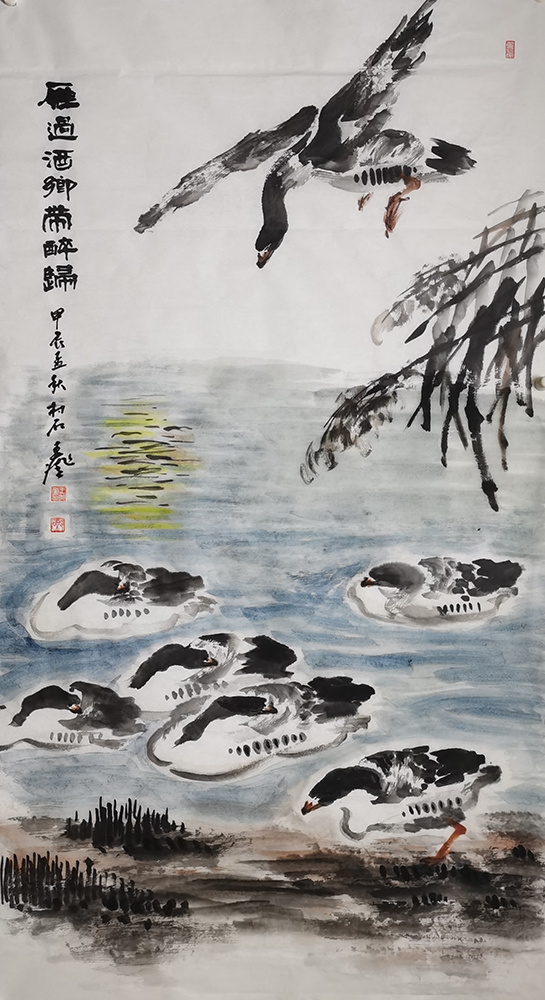 雁過酒鄉帶醉歸
甲辰孟秋村石